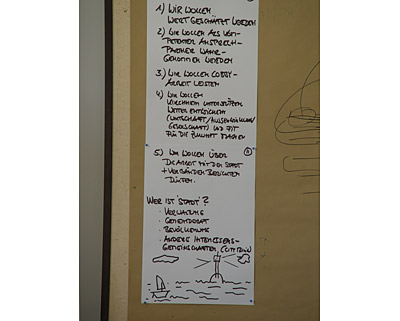 1) WIR WOLLEN
WERTGESCHÄTZT WERDEN
2) WIR WOLLEN ALS KOM-
PETENTER ANSPRECH-
PARTNER WAHR-
GENOMMEN WERDEN
3.) WIR WOLLEN LOBBY-
ARBEIT LEISTEN
4) WIR WOLLEN
KIRCHHEIM UNTERSTÜTZEN
WEITER ENTWICKELN
(WIRTSCHAFT/
GESELLSCHAFT) UND FIT
FÜR DIE ZUKUNFT MACHEN
5.) WIR WOLLEN ÜBER
DIE ARBEIT MIT DER STADT
+ VERBÄNDEN BERICHTEN
DÜRFEN.
WER IST 'STADT'?
· VERWALTUNG
· GEMEINDERAT
· BEVÖLKERUNG
· ANDERE INTERESSENS-
GEMEINSCHAFTEN (CITY RING)